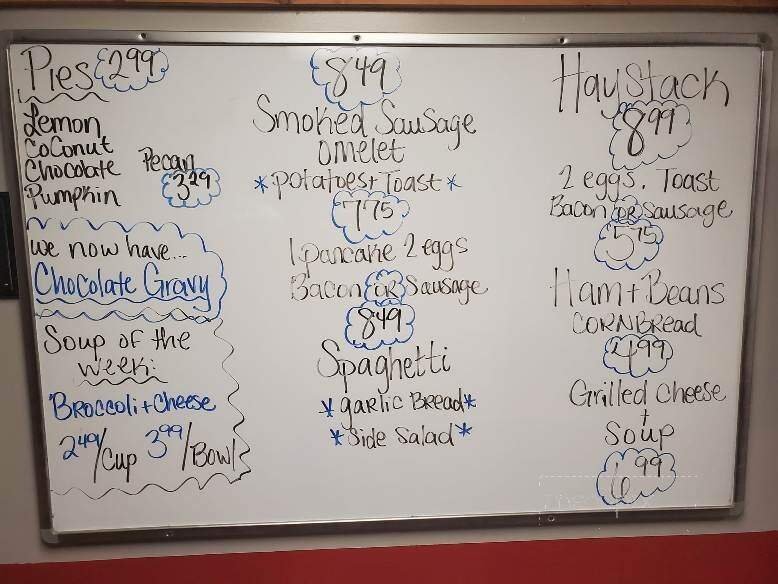 Pies 2.99
Lemon
Coconut
Chocolate
Pumpkin
Pecan
3.29
we now have...
Chocolate Gravy
Soup of the
week:
Broccoli + Cheese
2.49/Cup 3.99/Bowl
8.49
Smoked Sausage
omelet
*potatoes + Toast*
7.75
1 pancake 2 eggs
Bacon OR Sausage
8.49
Spaghetti
*garlic Bread*
*Side Salad*
Haystack
8.99
2 eggs. Toast
Bacon OR Sausage
5.75
Ham + Beans
CORNBRead
4.99
Grilled Cheese
+
Soup
6.99